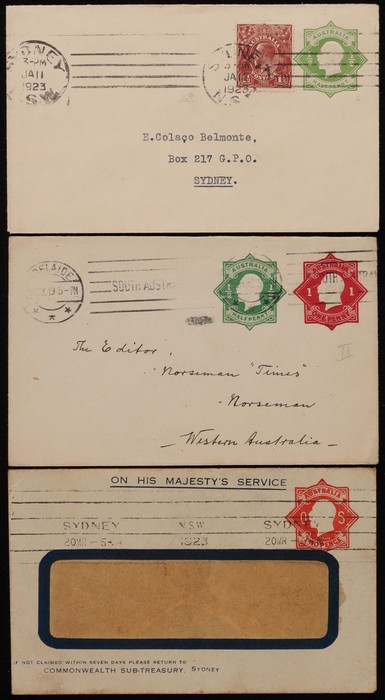 SYDNEY
3-PM
JA 11
1923
N.S.W
SYDNEY
JA 11
1923
N.S.W
AUSTRALIA
AUSTRALIA
HALFPENNY
E.Colaço Belmonte,
Box 217 G.P.O.
SYDNEY.
5-PM
SOUTH AUST
AUSTRALIA
½ ½
HALFPENNY
AUSTRALIA
1 1
ONE PENNY
II
The Editor,
Norseman "Times"
Norseman
Western Australia
ON HIS MAJESTY'S SERVICE
AUSTRALIA
O S
SYDNEY N.S.W SYDNEY
20MR 1923 20MR
IF NOT CLAIMED WITHIN SEVEN DAYS PLEASE RETURN TO
COMMONWEALTH SUB-TREASURY, SYDNEY